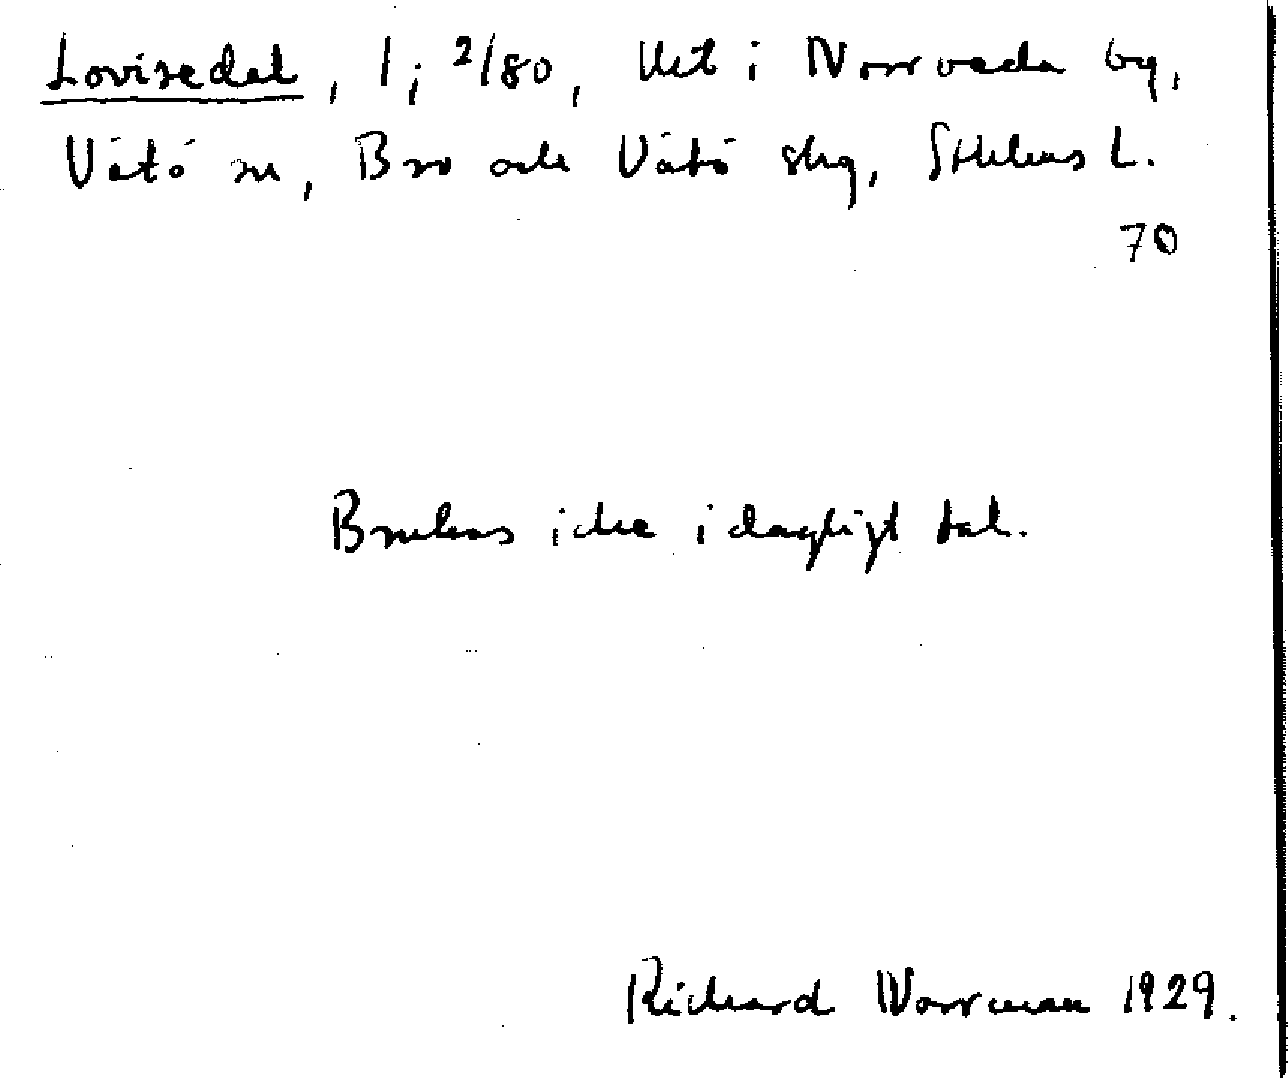 Lovisedal, 1; 2/80, Uet i Norrvada by,
Vätö sn, Bro och Vätö skg, Sthlms L.
70
Brukas icke i dagligt tal.
Richard Norrman 1929.